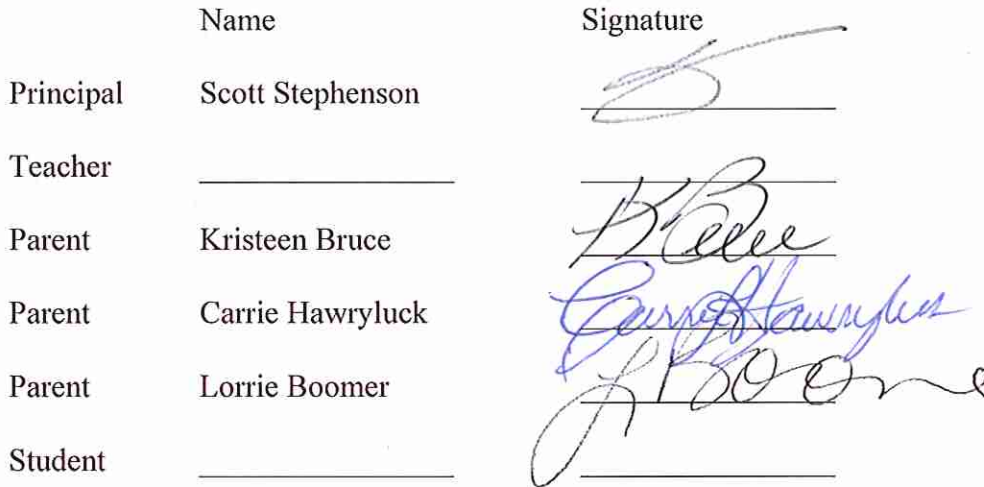 Name Signature
Principal Scott Stephenson
Teacher
Parent Kristeen Bruce K Bruce
Parent Carrie Hawryluck Carrie Hawryluck
Parent Lorrie Boomer L Boome
Student